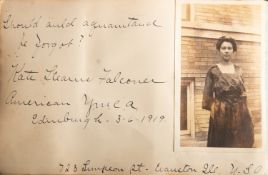 Should auld aquaintand
be forgot?
Kate Stearns Falconer
American Ymca
Edinburgh. 3-6-1919.
723 Simpson St. Evanston Ill. U.S.A